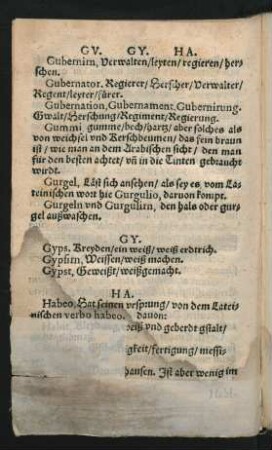 GV. GY. HA.
Gubernirn, Verwalten/leyten/regieren/herschen.
Gubernator. Regierer/Herscher/Verwalter/
Regent/leyter/fürer.
Gubernation, Gubernament. Gubernirung.
Gwalt/Herschung/Regiment/Regierung.
Gummi gumme/bech/hartz/aber solches als
von weichsel vnd Kerschbeumen/das fein braun
ist/wie man an dem Arabischen sicht/den man
für den besten achtet/vñ in die Tinten gebraucht
wirdt.
Gurgel, Läst sich ansehen/als sey es vom La-
teinischen wort hie Gurgulio, daruon kompt.
Gurgeln vnd Gurgulirn, den hals oder gur-
gel außwaschen.
GY.
Gyps. Kreyden/ein weiß/weiß erdtrich.
Gypsirn, Weissen/weiß machen.
Gypst, Geweißt/weißgemacht.
HA.
Habeo, Hat seinen vrsprung/von dem Latei-
nischen verbo habeo. dauon:
weiß vnd geberdt gstalt/
gkeit/fertigung/messi-
hausen. Ist aber wenig im